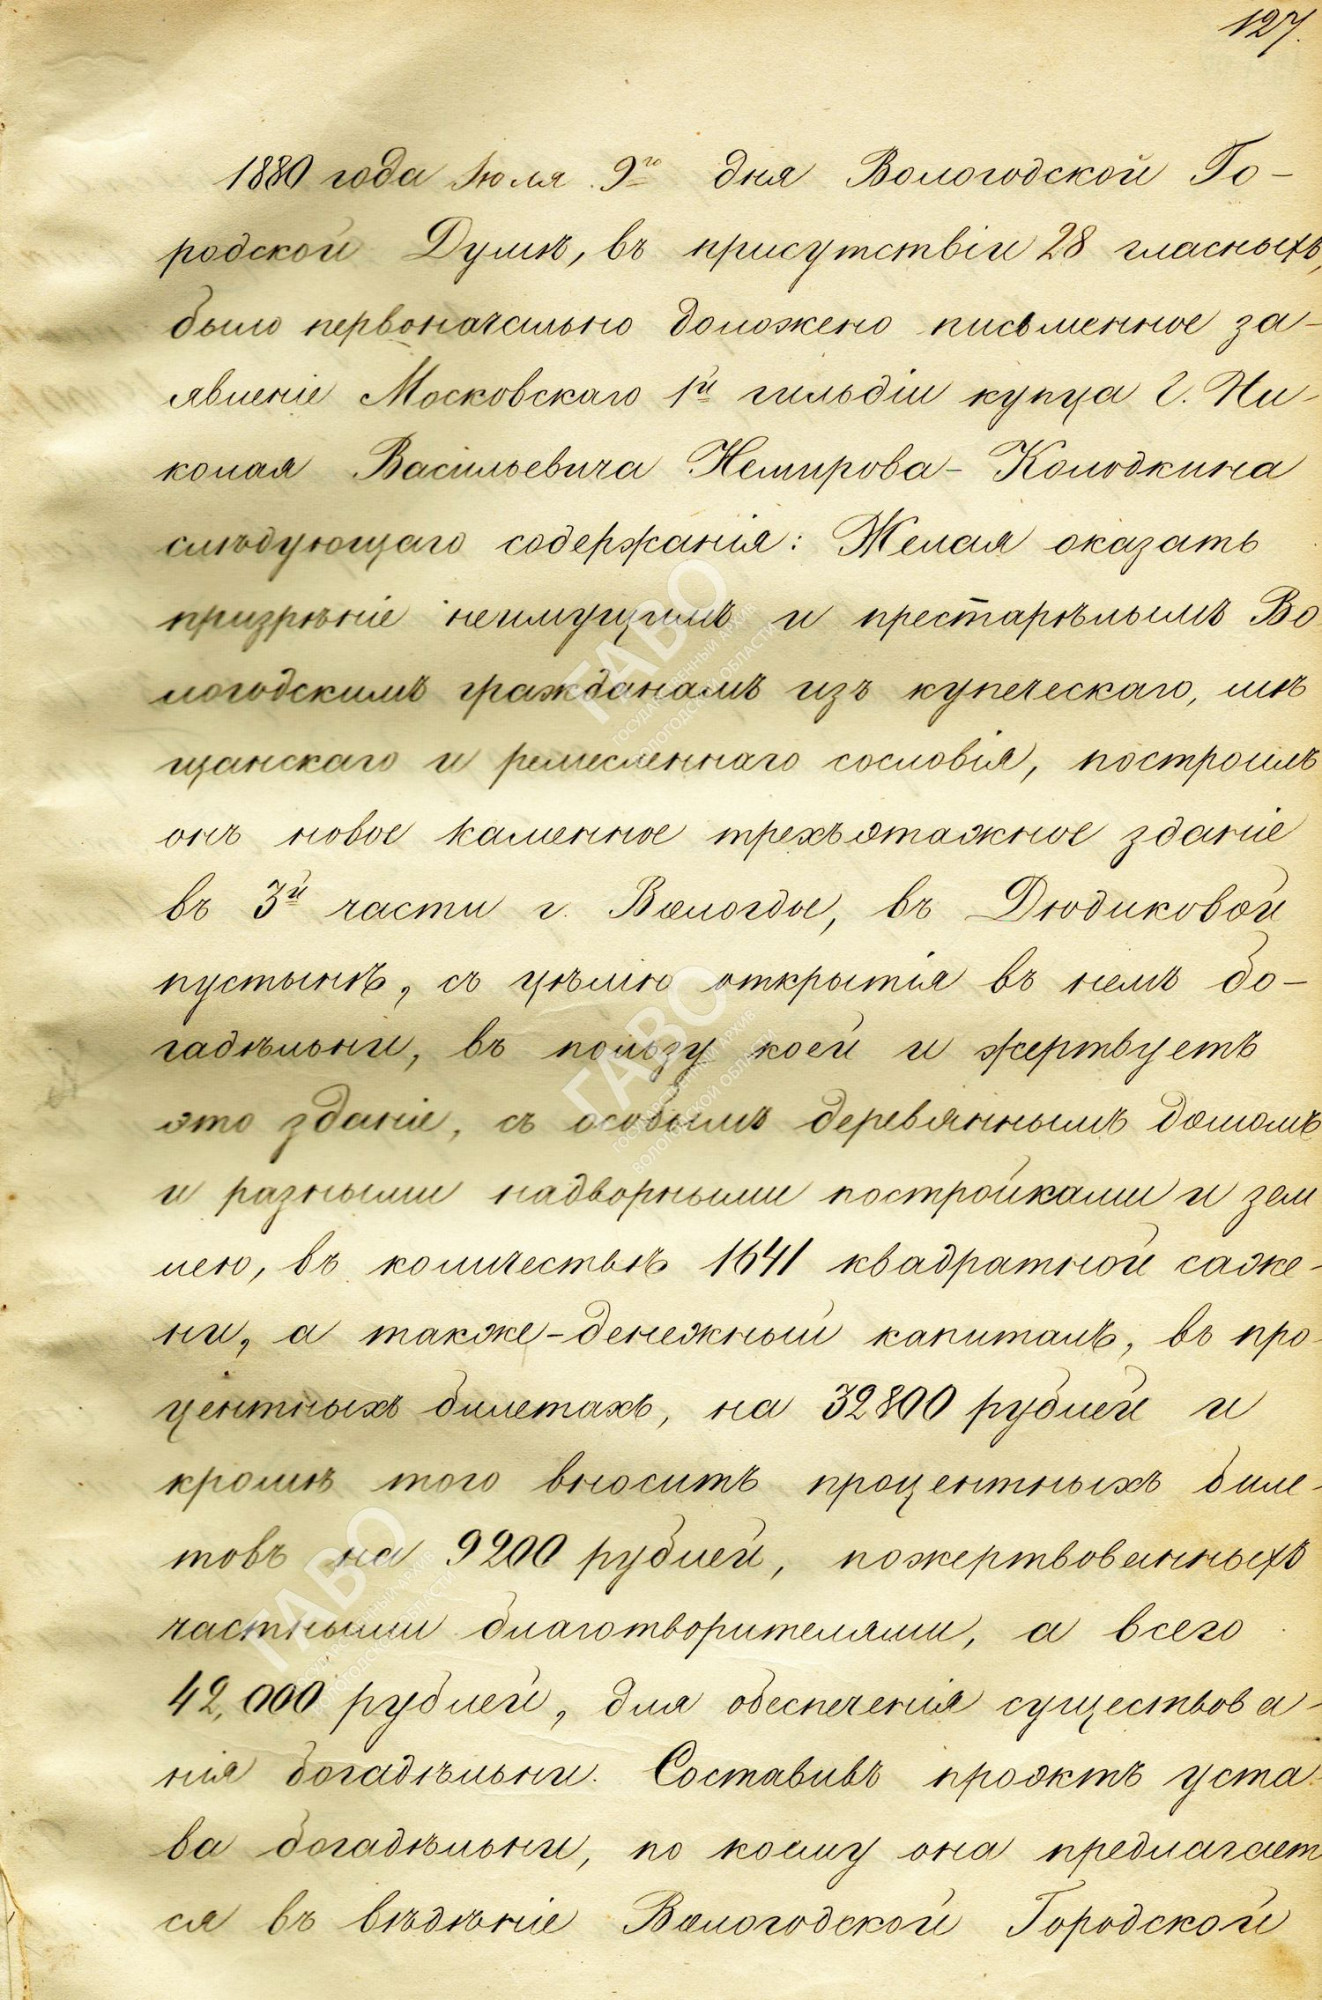 127.
1880 года Іюля 9го дня Вологодской Го-
родской Думѣ, въ присутствіи 28 гласныхъ,
было первоначально доложено письменное за-
явленіе Московскаго 1й гильдіи купца Г. Ни-
колая Васильевича Немирова-Колодкина
слѣдующаго содержанія: Желая оказать
призрѣніе неимущимъ и престарѣлымъ Во
логодскимъ гражданамъ изъ купеческаго, мѣ
щанскаго и ремесленнаго сословія, построилъ
онъ новое каменное трехъэтажное зданіе
въ 3й части г. Вологды, въ Дюдиковой
пустынѣ, съ цѣлію открытія въ немъ бо-
гадѣльни, въ пользу коей и жертвуетъ
это зданіе, съ особымъ деревяннымъ домомъ
и разными надворными постройками и зем
лею, въ количествѣ 1641 квадратной саже-
ни, а также-денежный капиталъ, въ про-
центныхъ билетахъ, на 32800 рублей и
кромѣ того вноситъ процентныхъ биле-
товъ на 9200 рублей, пожертвованныхъ
частными благотворителями, а всего
42,000 рублей, для обеспеченія существова-
нія богадѣльни. Составивъ проэктъ уста-
ва богадѣльни, по коему она предлагает
ся въ вѣдѣніе Вологодской Городской
ГАВО
ГОСУДАРСТВЕННЫЙ АРХИВ
ВОЛОГОДСКОЙ ОБЛАСТИ
ГАВО
ГОСУДАРСТВЕННЫЙ АРХИВ
ВОЛОГОДСКОЙ ОБЛАСТИ
ГАВО
ГОСУДАРСТВЕННЫЙ АРХИВ
ВОЛОГОДСКОЙ ОБЛАСТИ